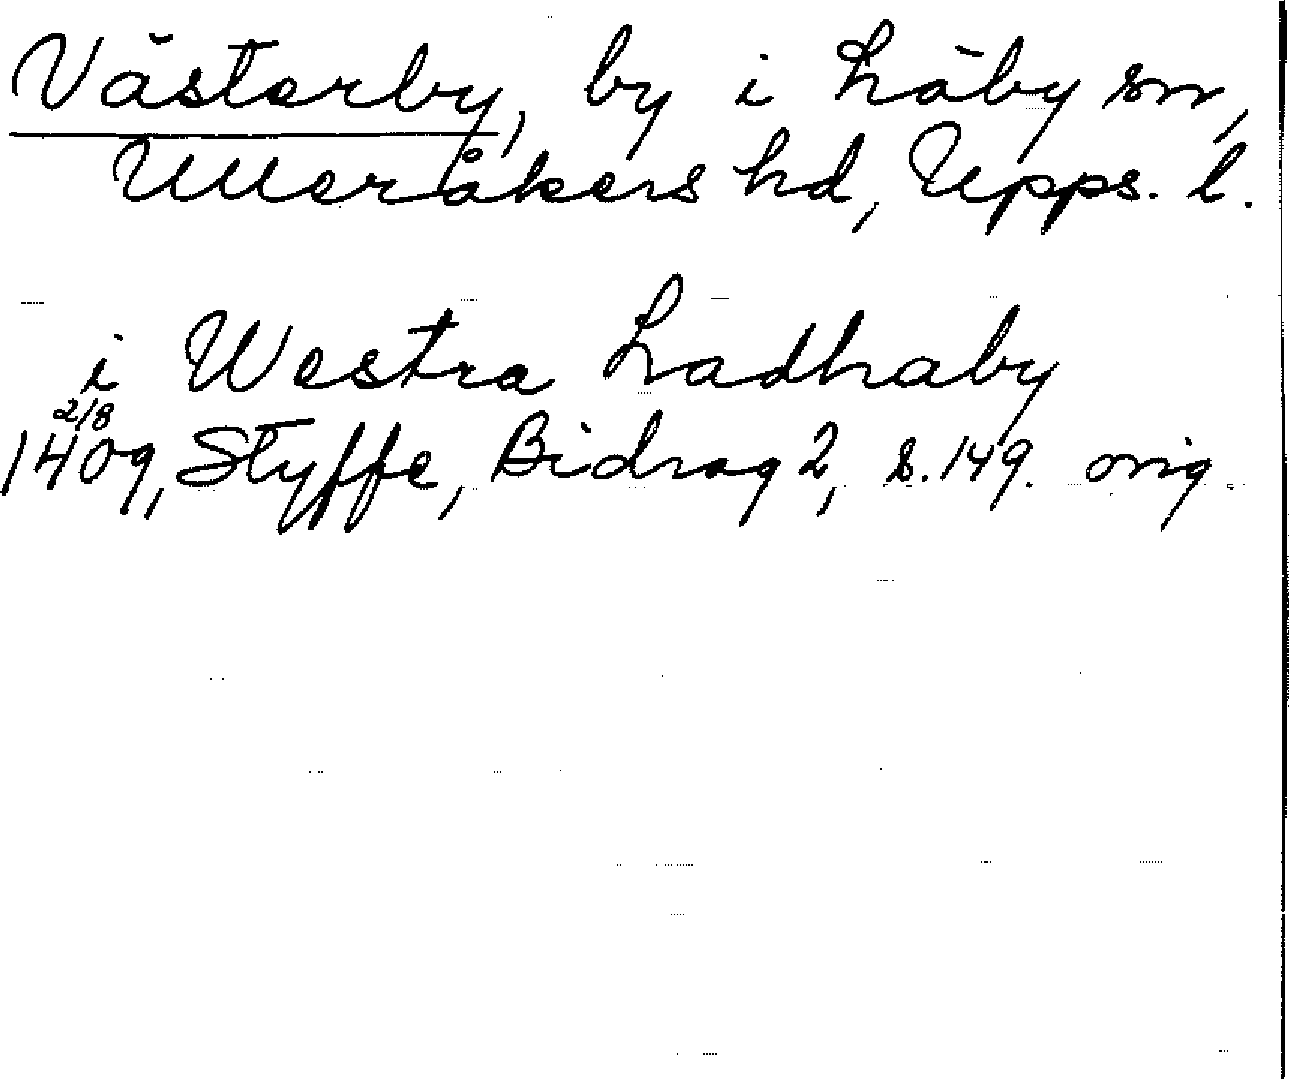 Västerby, by i Läby sn,
Ulleråkers hd, Upps. l.
i Westra Ladhaby
2/8
1409, Styffe, Bidrag 2, s. 149. orig.